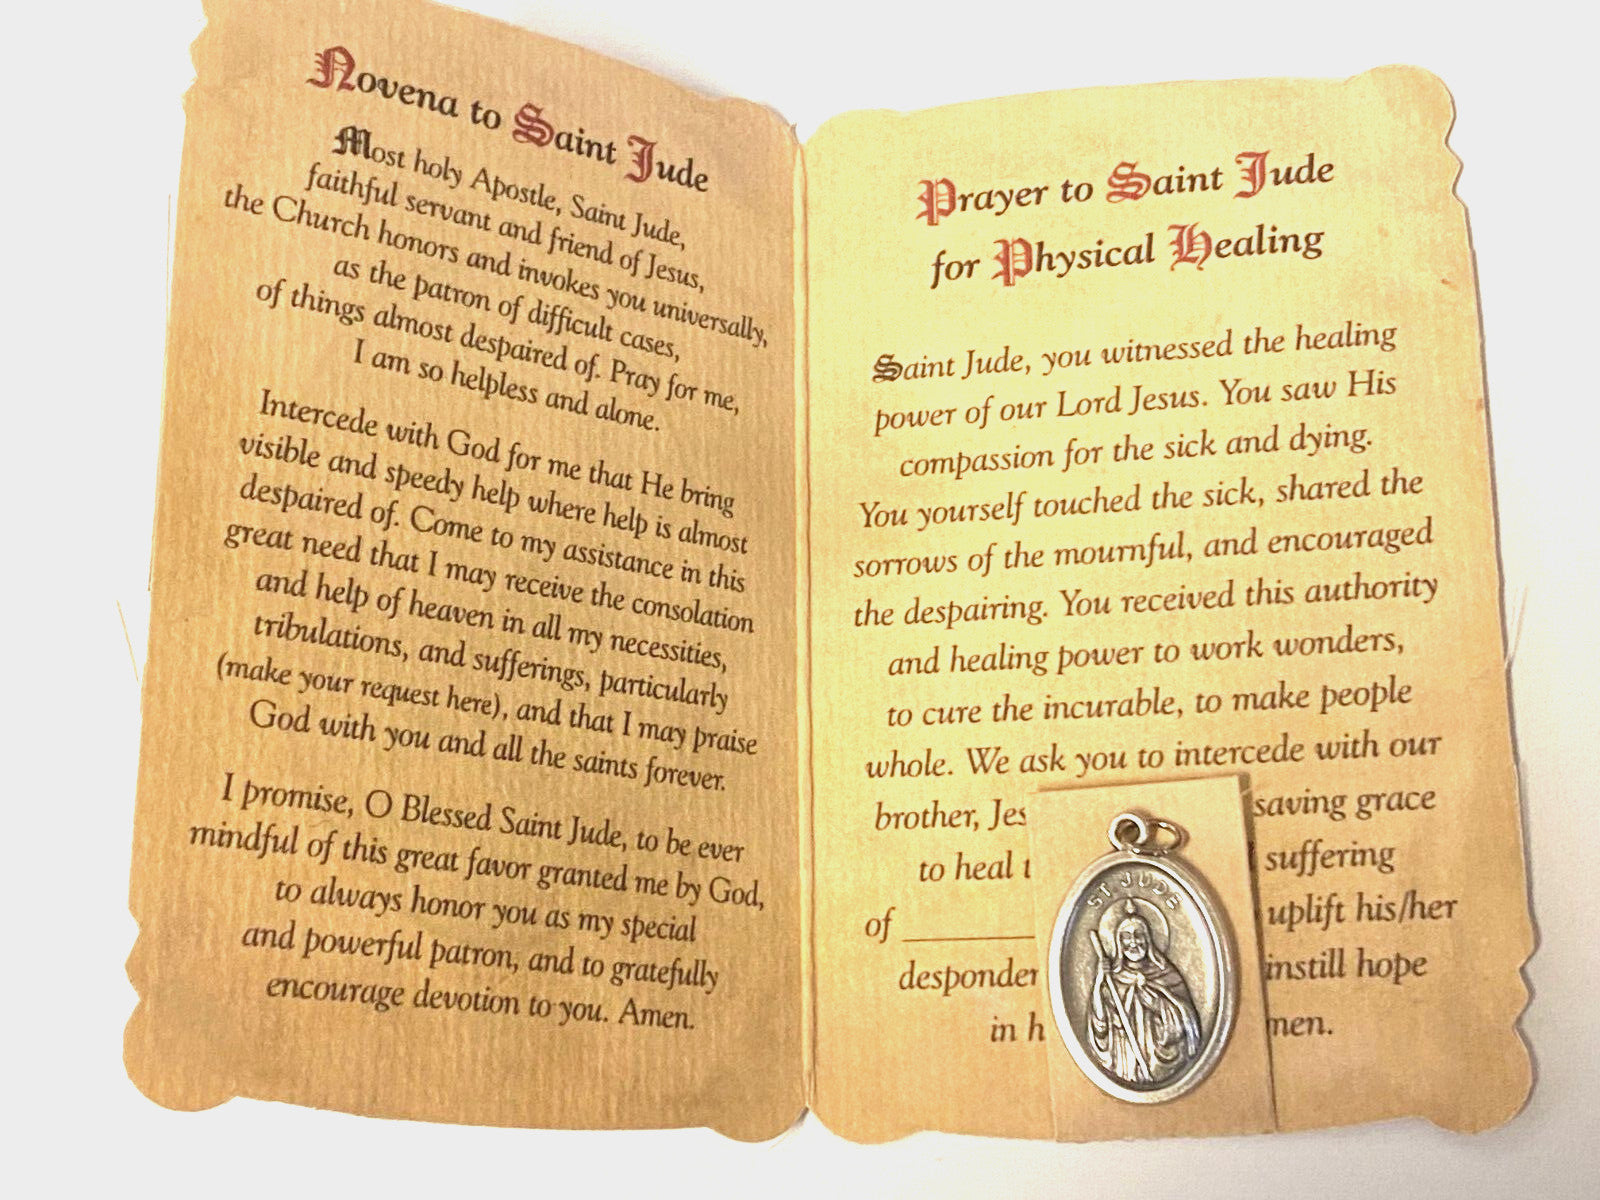 Novena to Saint Jude
Most holy Apostle, Saint Jude,
faithful servant and friend of Jesus,
the Church honors and invokes you universally,
as the patron of difficult cases,
of things almost despaired of. Pray for me,
I am so helpless and alone.
Intercede with God for me that He bring
visible and speedy help where help is almost
despaired of. Come to my assistance in this
great need that I may receive the consolation
and help of heaven in all my necessities,
tribulations, and sufferings, particularly
(make your request here), and that I may praise
God with you and all the saints forever.
I promise, O Blessed Saint Jude, to be ever
mindful of this great favor granted me by God,
to always honor you as my special
and powerful patron, and to gratefully
encourage devotion to you. Amen.
Prayer to Saint Jude
for Physical Healing
Saint Jude, you witnessed the healing
power of our Lord Jesus. You saw His
compassion for the sick and dying.
You yourself touched the sick, shared the
sorrows of the mournful, and encouraged
the despairing. You received this authority
and healing power to work wonders,
to cure the incurable, to make people
whole. We ask you to intercede with our
brother, saving grace
to heal suffering
of uplift his/her
instill hope
in
ST JUDE